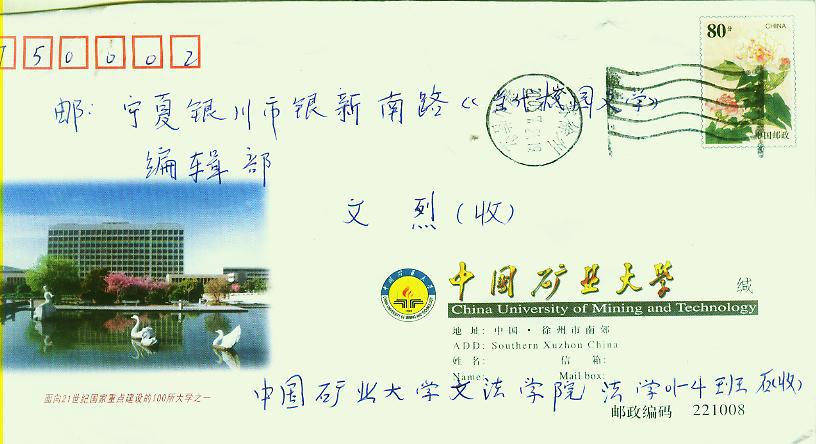 750002
80分
CHINA
中国邮政
邮:宁夏银川市银新南路《当代校园文学》
编辑部
文 烈(收)
中国矿业大学
缄
China University of Mining and Technology
地 址: 中 国 · 徐州市南郊
ADD: Southern Xuzhou China
姓 名: 信 箱:
Name: Mail box:
中国矿业大学文法学院 法学01-4班
面向21世纪国家重点建设的100所大学之一
邮政编码 221008